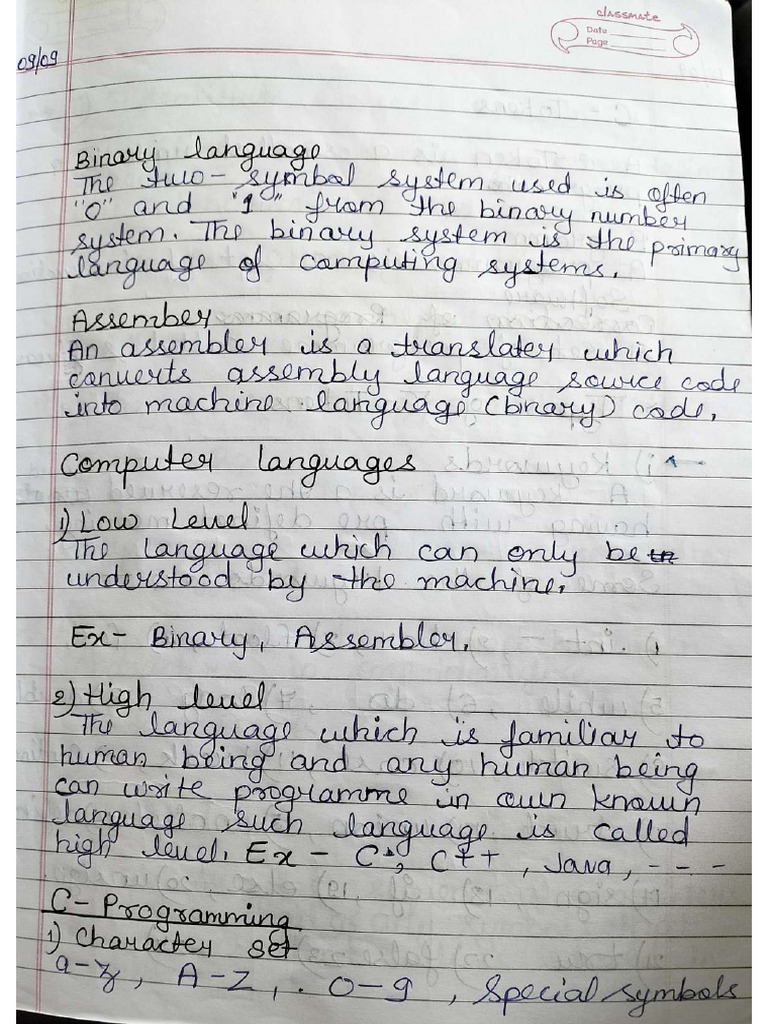 classmate
Date
Page
09/09
Binary language
The two-symbol system used is often
"0" and "1" from the binary number
system. The binary system is the primary
language of computing systems.
Assember
An assembler is a translater which
converts assembly language source code
into machine language (binary) code.
Computer languages
1) Low Level
The language which can only be
understood by the machine.
Ex- Binary, Assembler.
2) High level
The language which is familiar to
human being and any human being
can write programme in own known
language such language is called
high level. Ex - C, C++, Java, ---
C- Programming
1) Character set
a-z, A-Z, . 0-9, special symbols